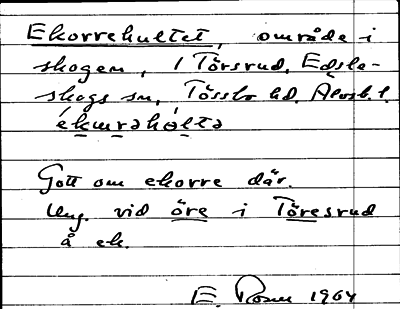 Ekorrehultet, område i
skogen, i Törsrud, Edsle-
skogs sn, Tössbo hd. Älvsb. l.
ékωrəhóltə
Gott om ekorre där.
Ung. vid öre i Töresrud
å ek.
E. Rosen 1964